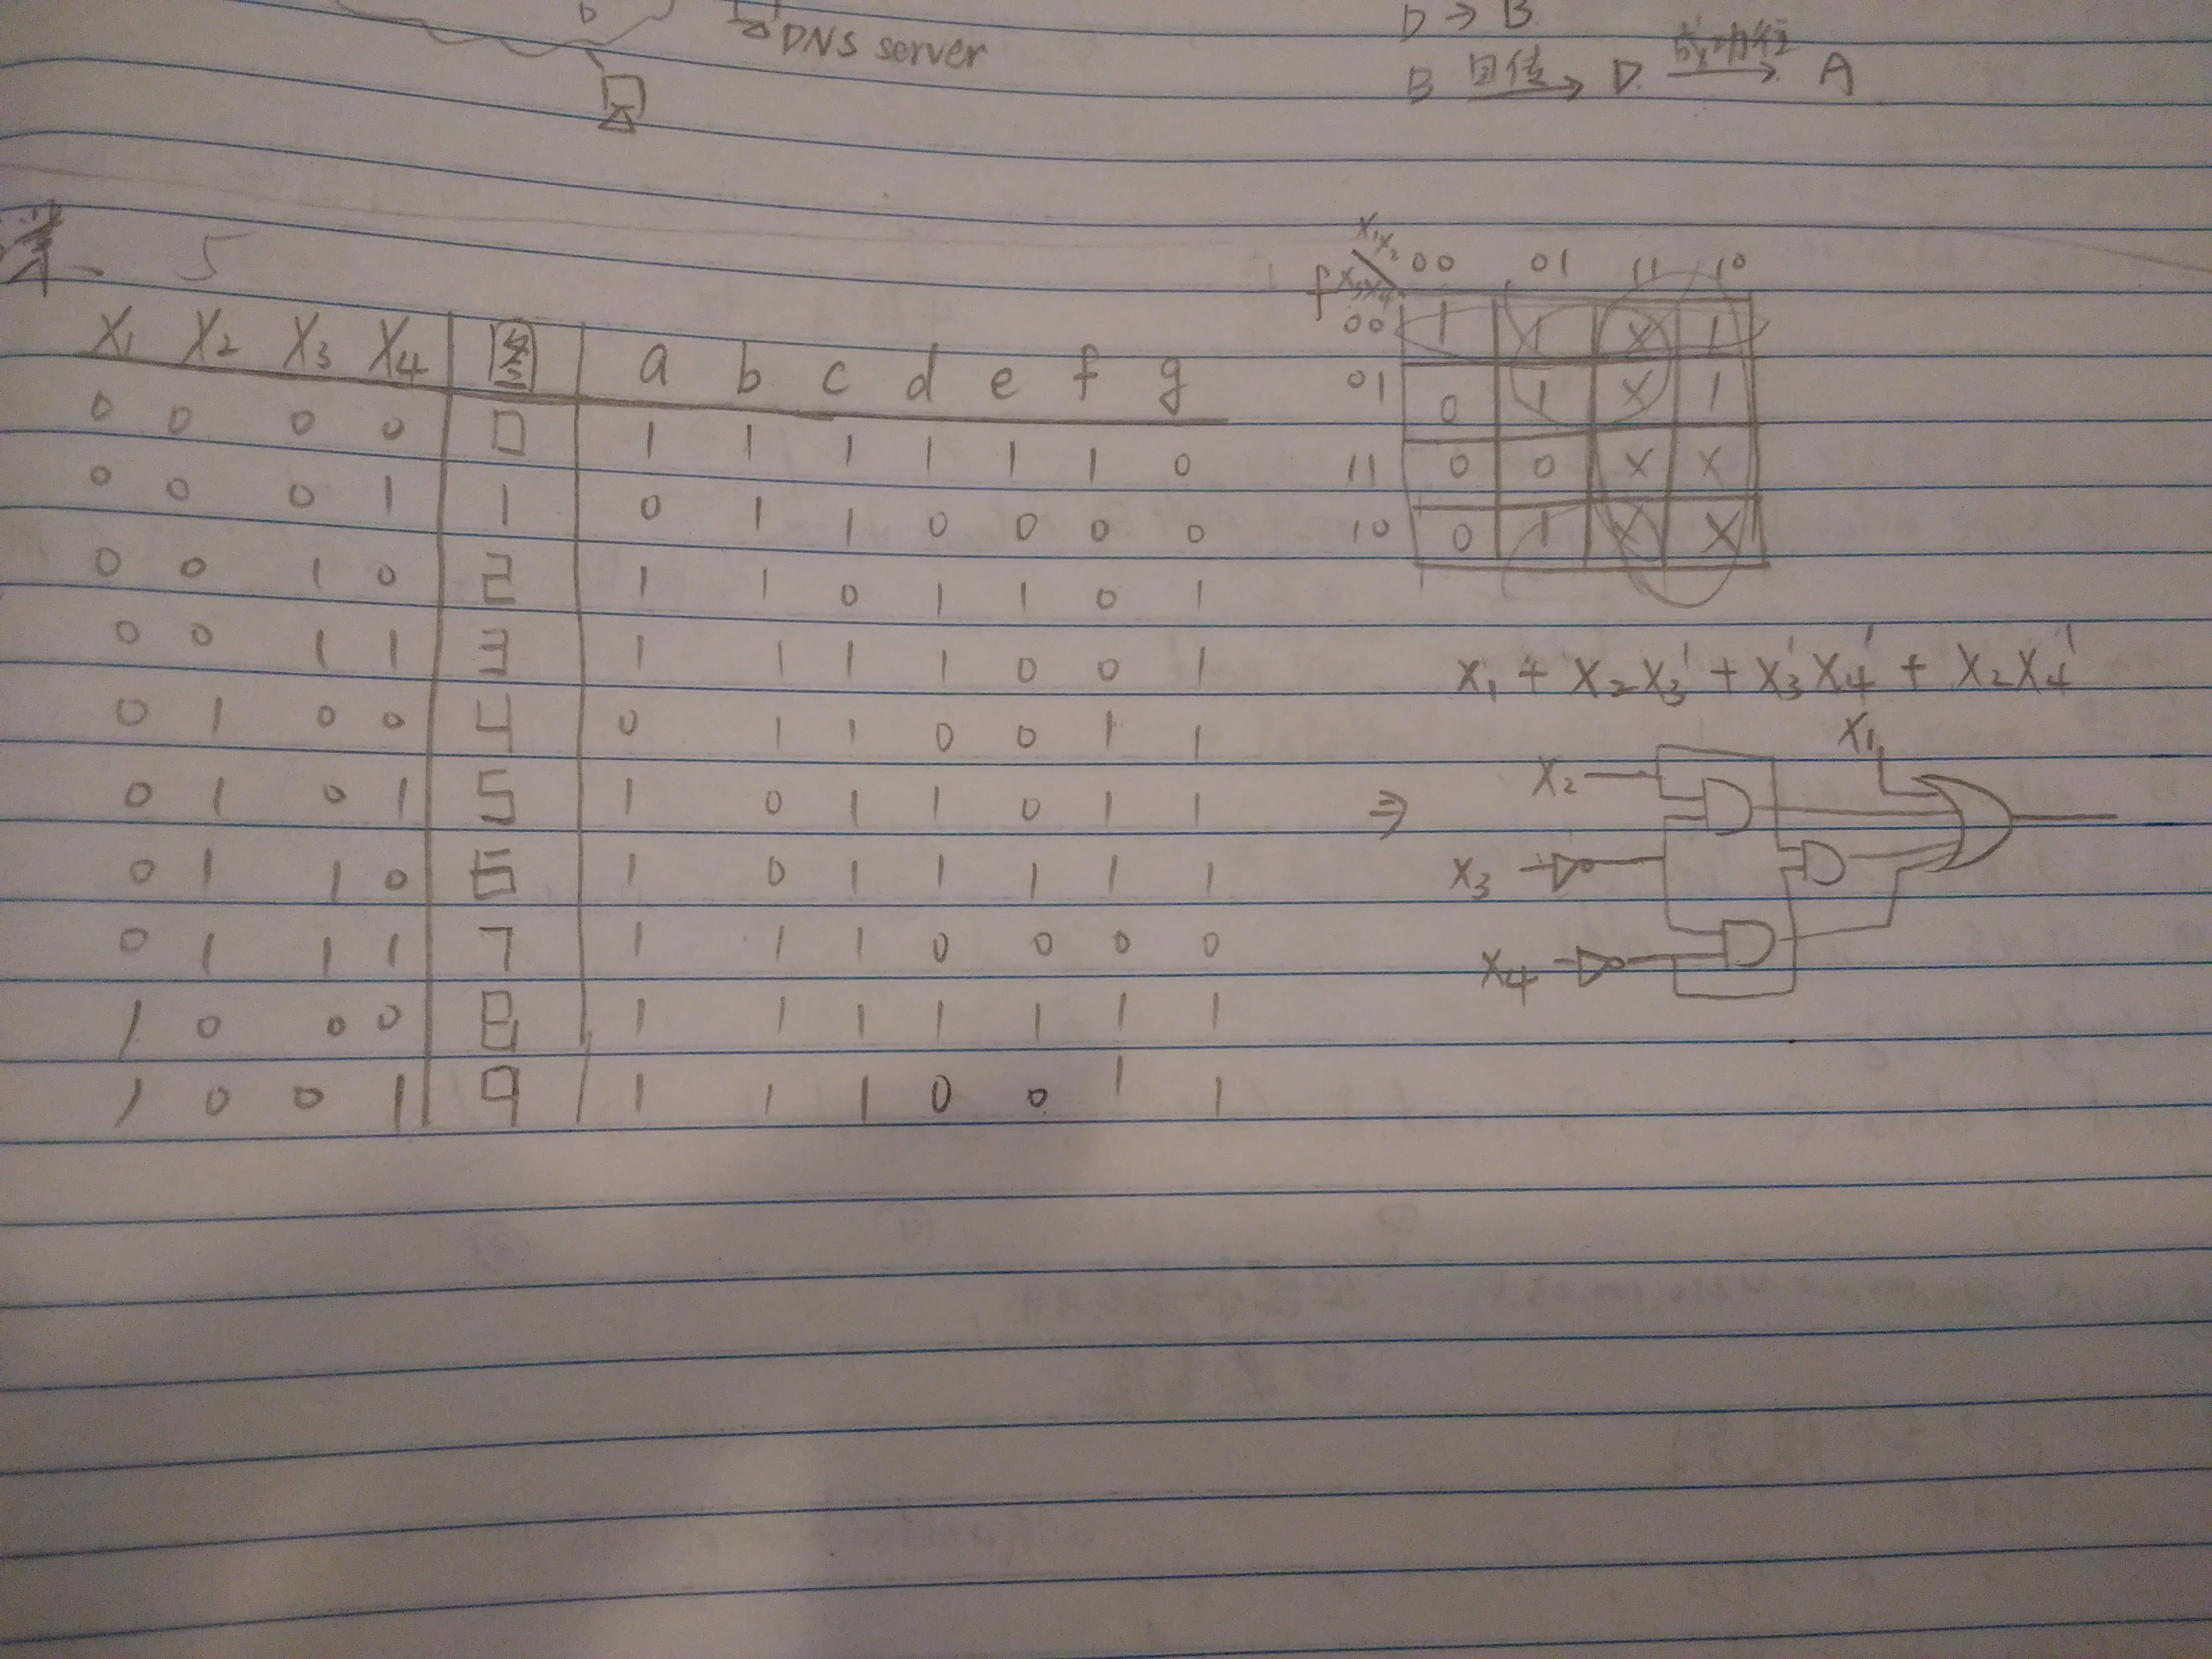 D
DNS server
D → B
B 回传 → D → A
5
X1 X2 X3 X4 a b c d e f g
0 0 0 0 0 1 1 1 1 1 1 0
0 0 0 1 1 0 1 1 0 0 0 0
0 0 1 0 2 1 1 0 1 1 0 1
0 0 1 1 3 1 1 1 1 0 0 1
0 1 0 0 4 0 1 1 0 0 1 1
0 1 0 1 5 1 0 1 1 0 1 1
0 1 1 0 6 1 0 1 1 1 1 1
0 1 1 1 7 1 1 1 0 0 0 0
1 0 0 0 8 1 1 1 1 1 1 1
1 0 0 1 9 1 1 1 0 0 1 1
X1X2
f X3X4 00 01 11 10
00 1 1 X 1
01 0 1 X 1
11 0 0 X X
10 0 1 X X
X1 + X2X3' + X3'X4' + X2X4'
X1
X2
⇒
X3
X4